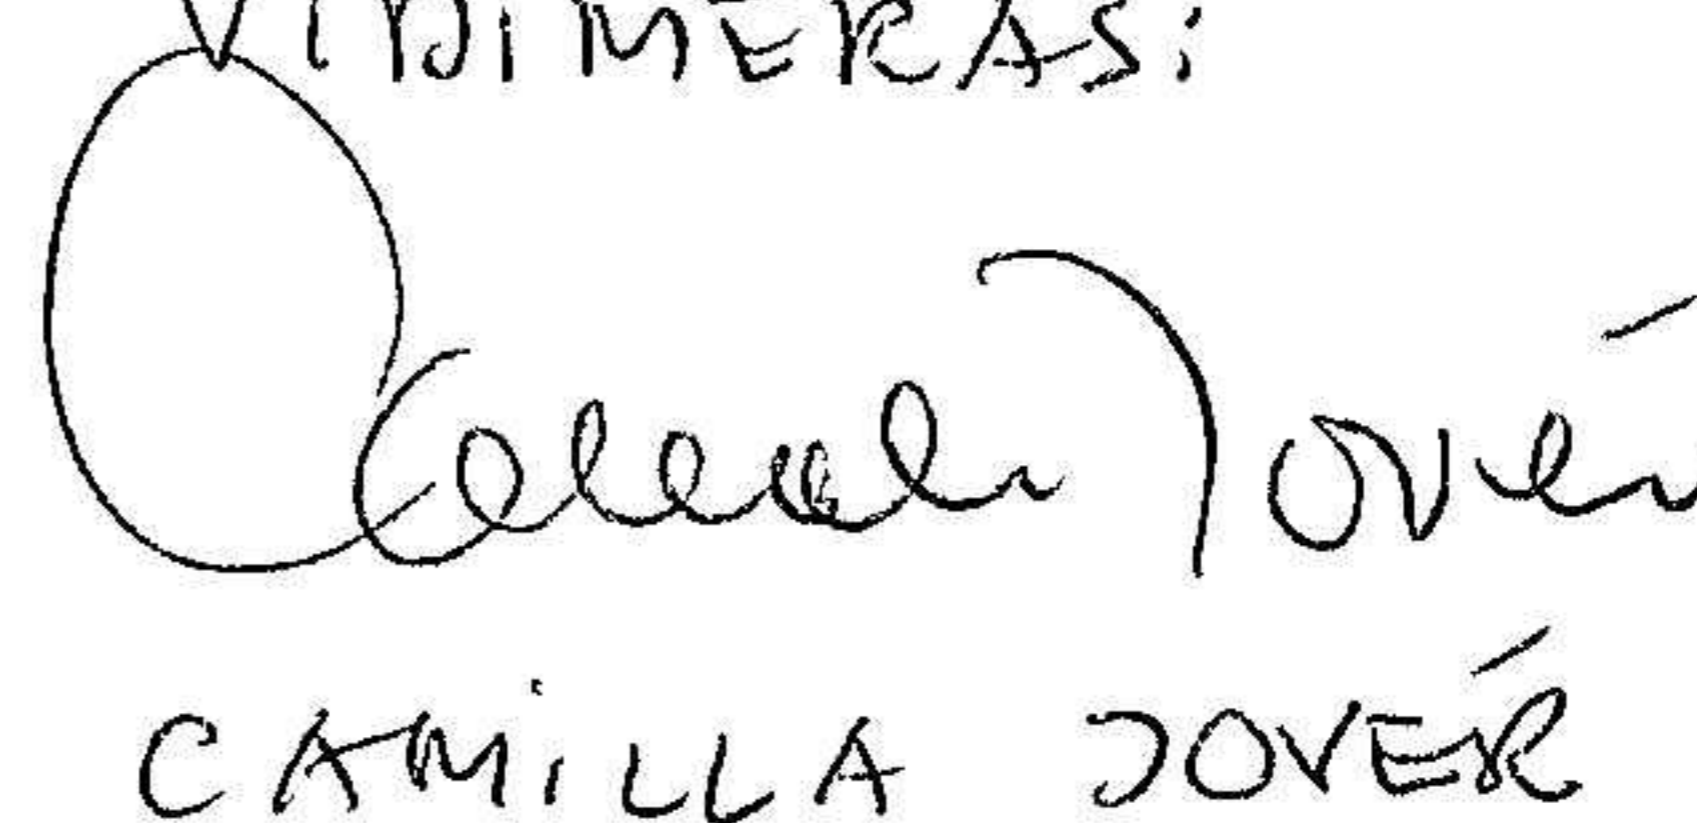 VIDIMERAS:
Camilla Jovér
CAMILLA JOVÉR